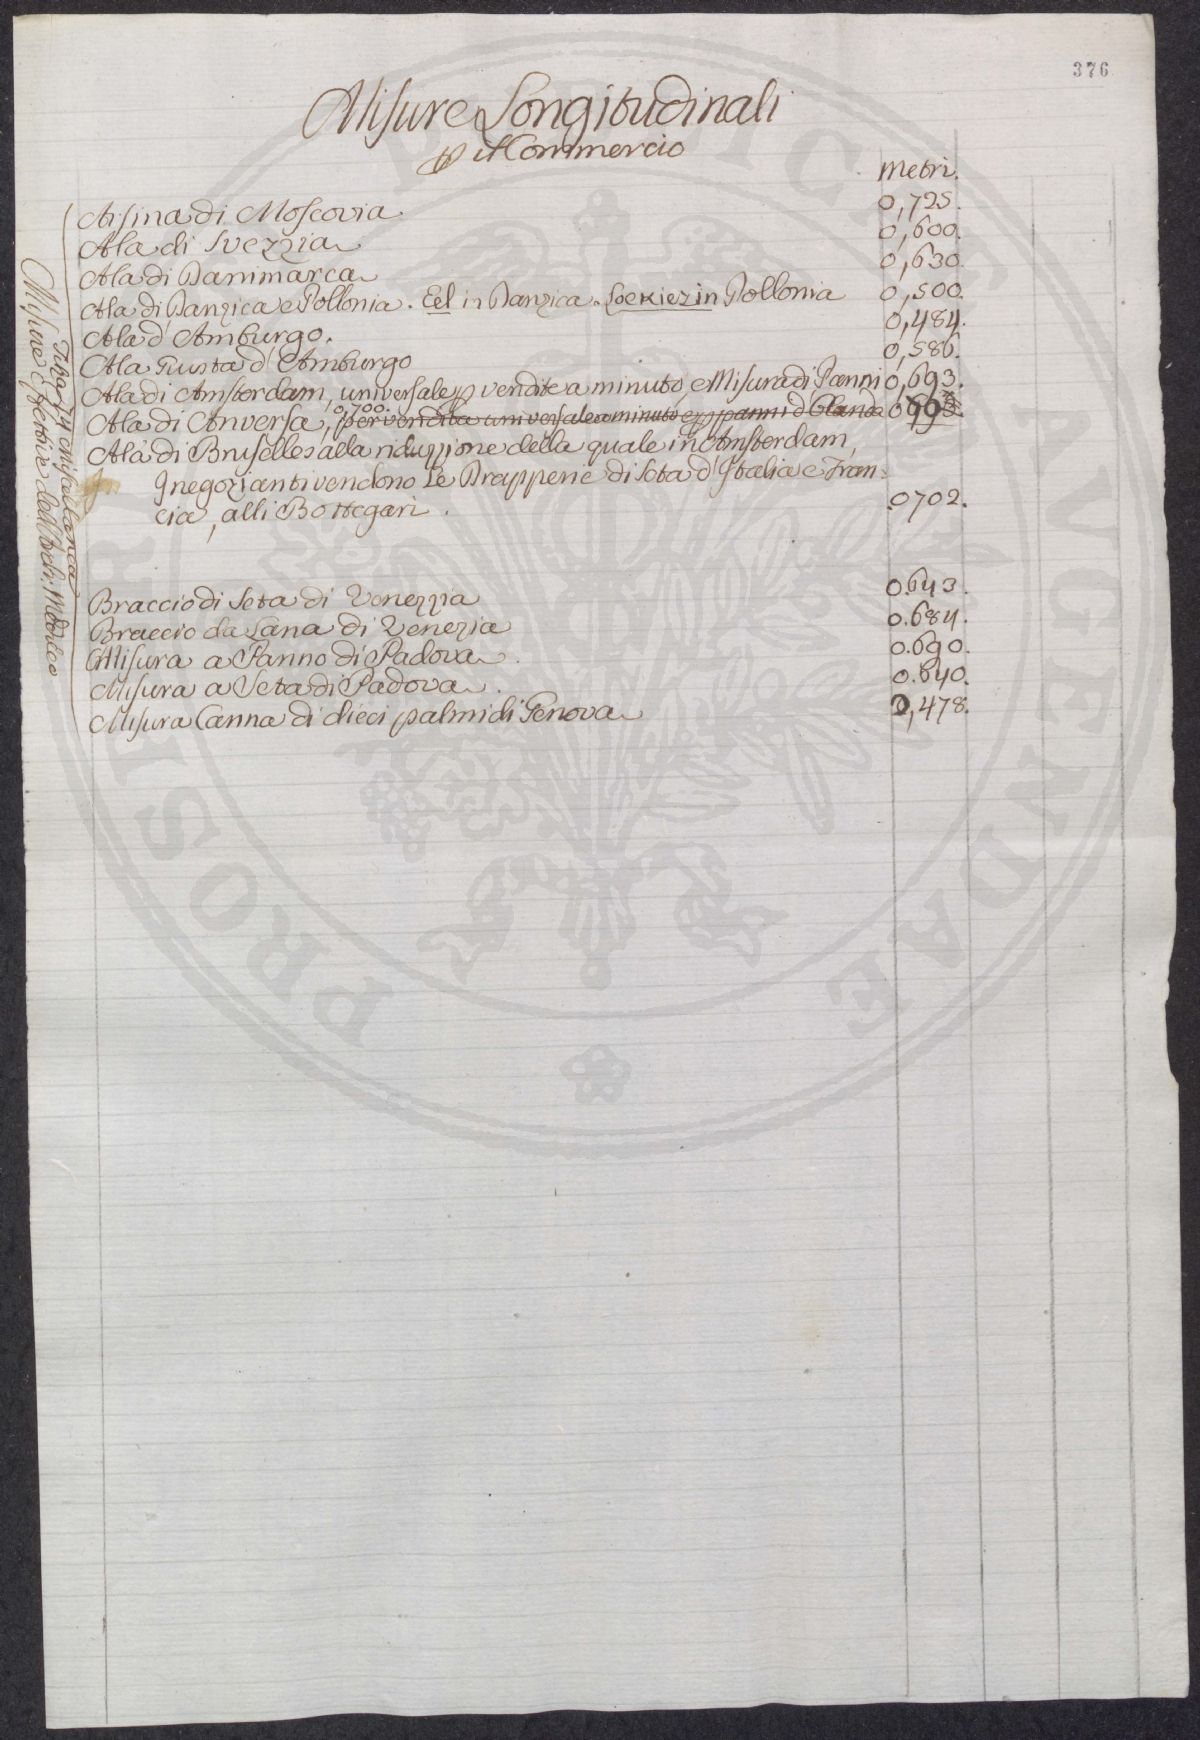 376
Misure Longitudinali
p il Commercio
Metri.
Arsina di Moscovia 0,725.
Ala di Svezzia 0,600.
Ala di Danimarca 0,630.
Ala di Danzica e Pollonia. Eel in Danzica. Loekiezin Pollonia 0,500.
Ala d'Amburgo. 0,484.
Ala Giusta d'Amburgo 0,586.
Ala di Amsterdam, universale p vendite a minuto, e Misura di Panni 0,693.
Ala di Anversa, 0,700. per vendita universale a minuto e p panni d'Olanda
Ala di Bruselles alla riduzzione della quale in Amsterdam,
I negozianti vendono Le Drapperie di Seta d'Italia e Fran=
cia, alli Bottegari. 0702.
Braccio di Seta di Venezzia 0.643.
Braccio da Lana di Venezia 0.684.
Misura a Panno di Padova. 0.690.
Misura a Seta di Padova. 0.640.
Misura Canna di dieci palmi di Genova 0,478.
Misure
PUBLICE AUGENDAE PROSPERITATI